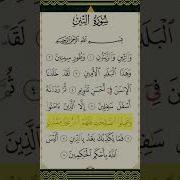 سُورَةُ التِّينِ
بِسْمِ اللَّهِ الرَّحْمَٰنِ الرَّحِيمِ
وَالتِّينِ وَالزَّيْتُونِ ١ وَطُورِ سِينِينَ ٢
وَهَٰذَا الْبَلَدِ الْأَمِينِ ٣ لَقَدْ خَلَقْنَا
الْإِنسَٰنَ فِي أَحْسَنِ تَقْوِيمٍ ٤ ثُمَّ رَدَدْنَٰهُ
أَسْفَلَ سَٰفِلِينَ ٥ إِلَّا الَّذِينَ ءَامَنُوا
وَعَمِلُوا الصَّٰلِحَٰتِ فَلَهُمْ أَجْرٌ غَيْرُ مَمْنُونٍ ٦
فَمَا يُكَذِّبُكَ بَعْدُ بِالدِّينِ ٧ أَلَيْسَ
اللَّهُ بِأَحْكَمِ الْحَٰكِمِينَ ٨